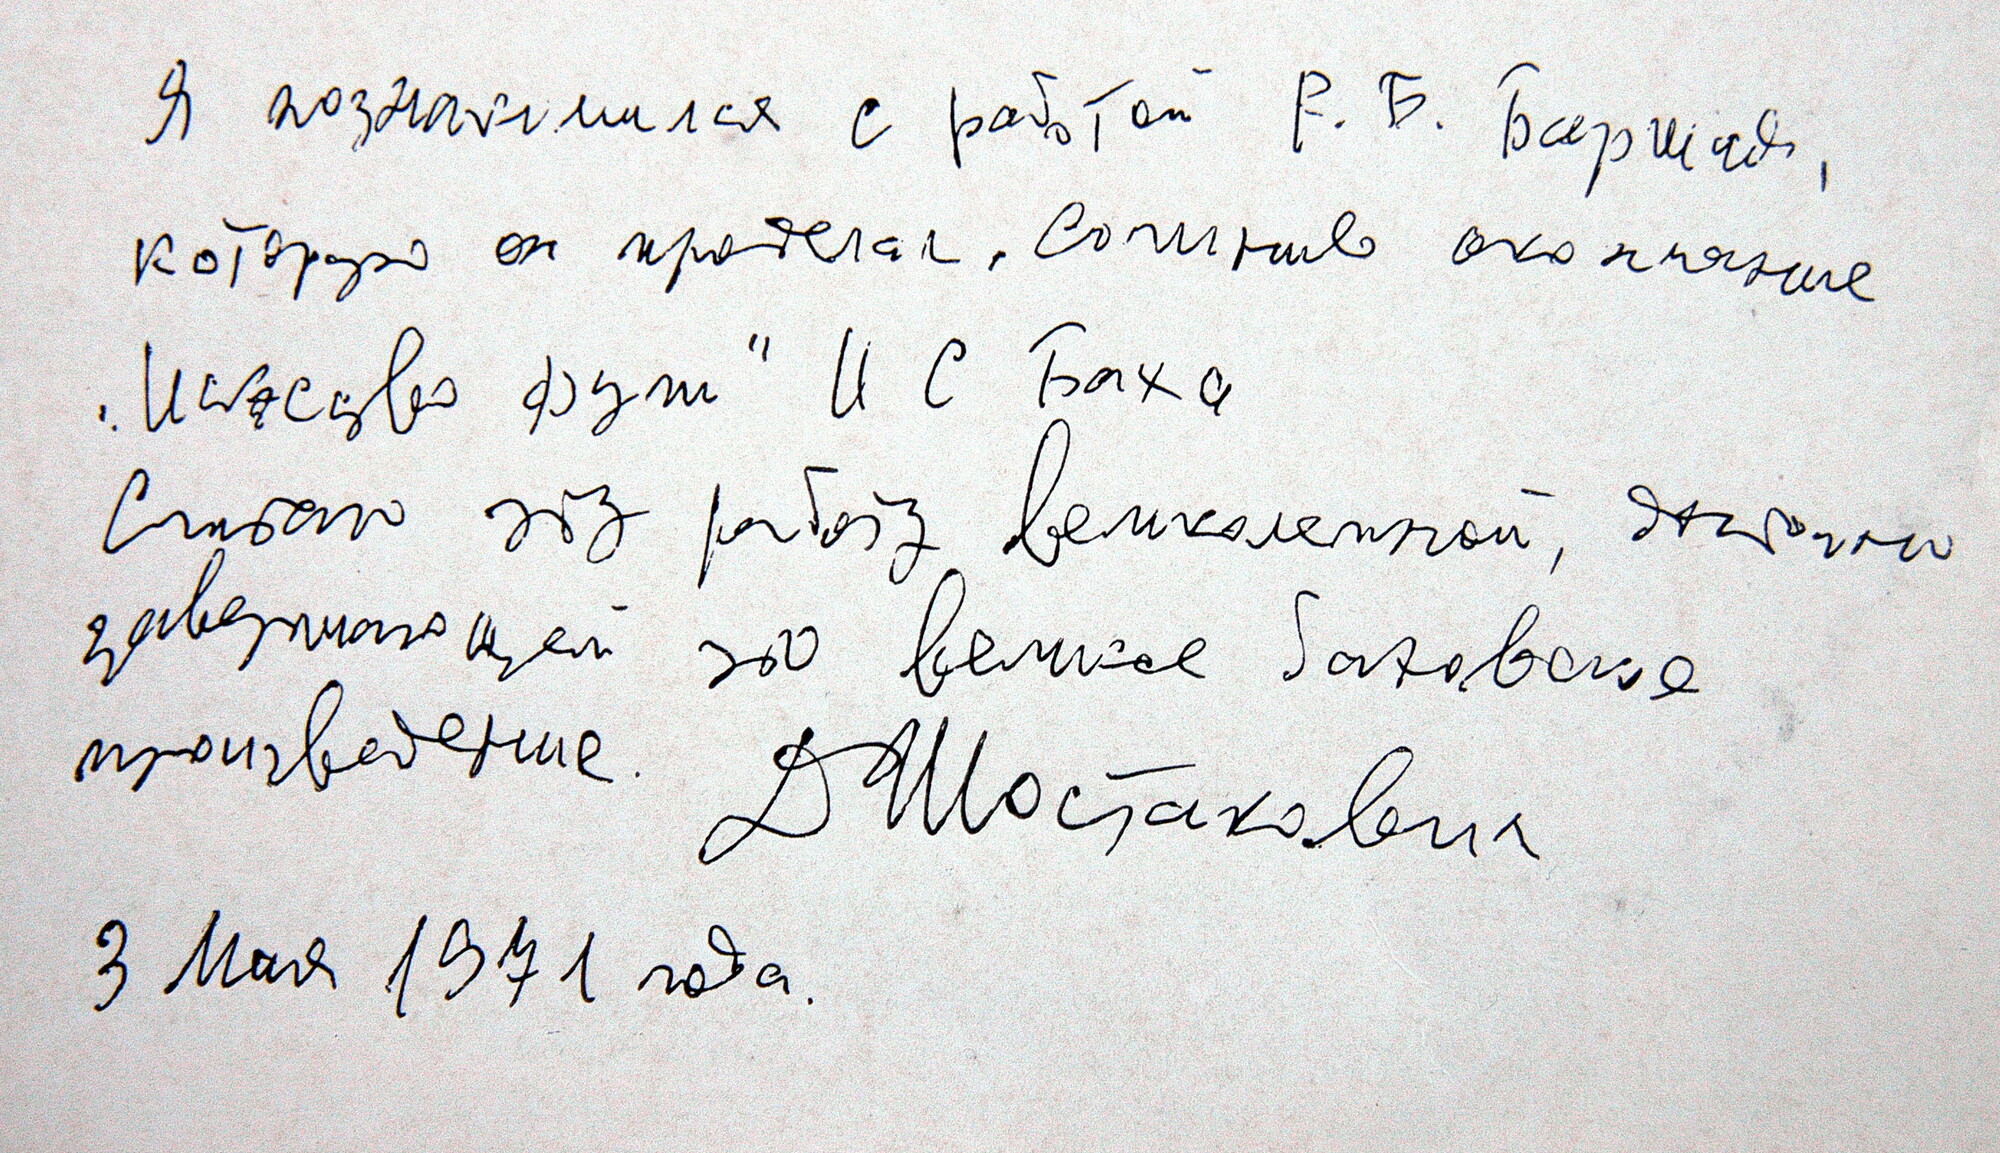 Я познакомился с работой Р. Б. Баршая,
которую он проделал, сочинив окончание
„Искусства фуги" И С Баха
Считаю эту работу великолепной,
завершающей это великое баховское
произведение. Д Шостакович
3 Мая 1971 года.